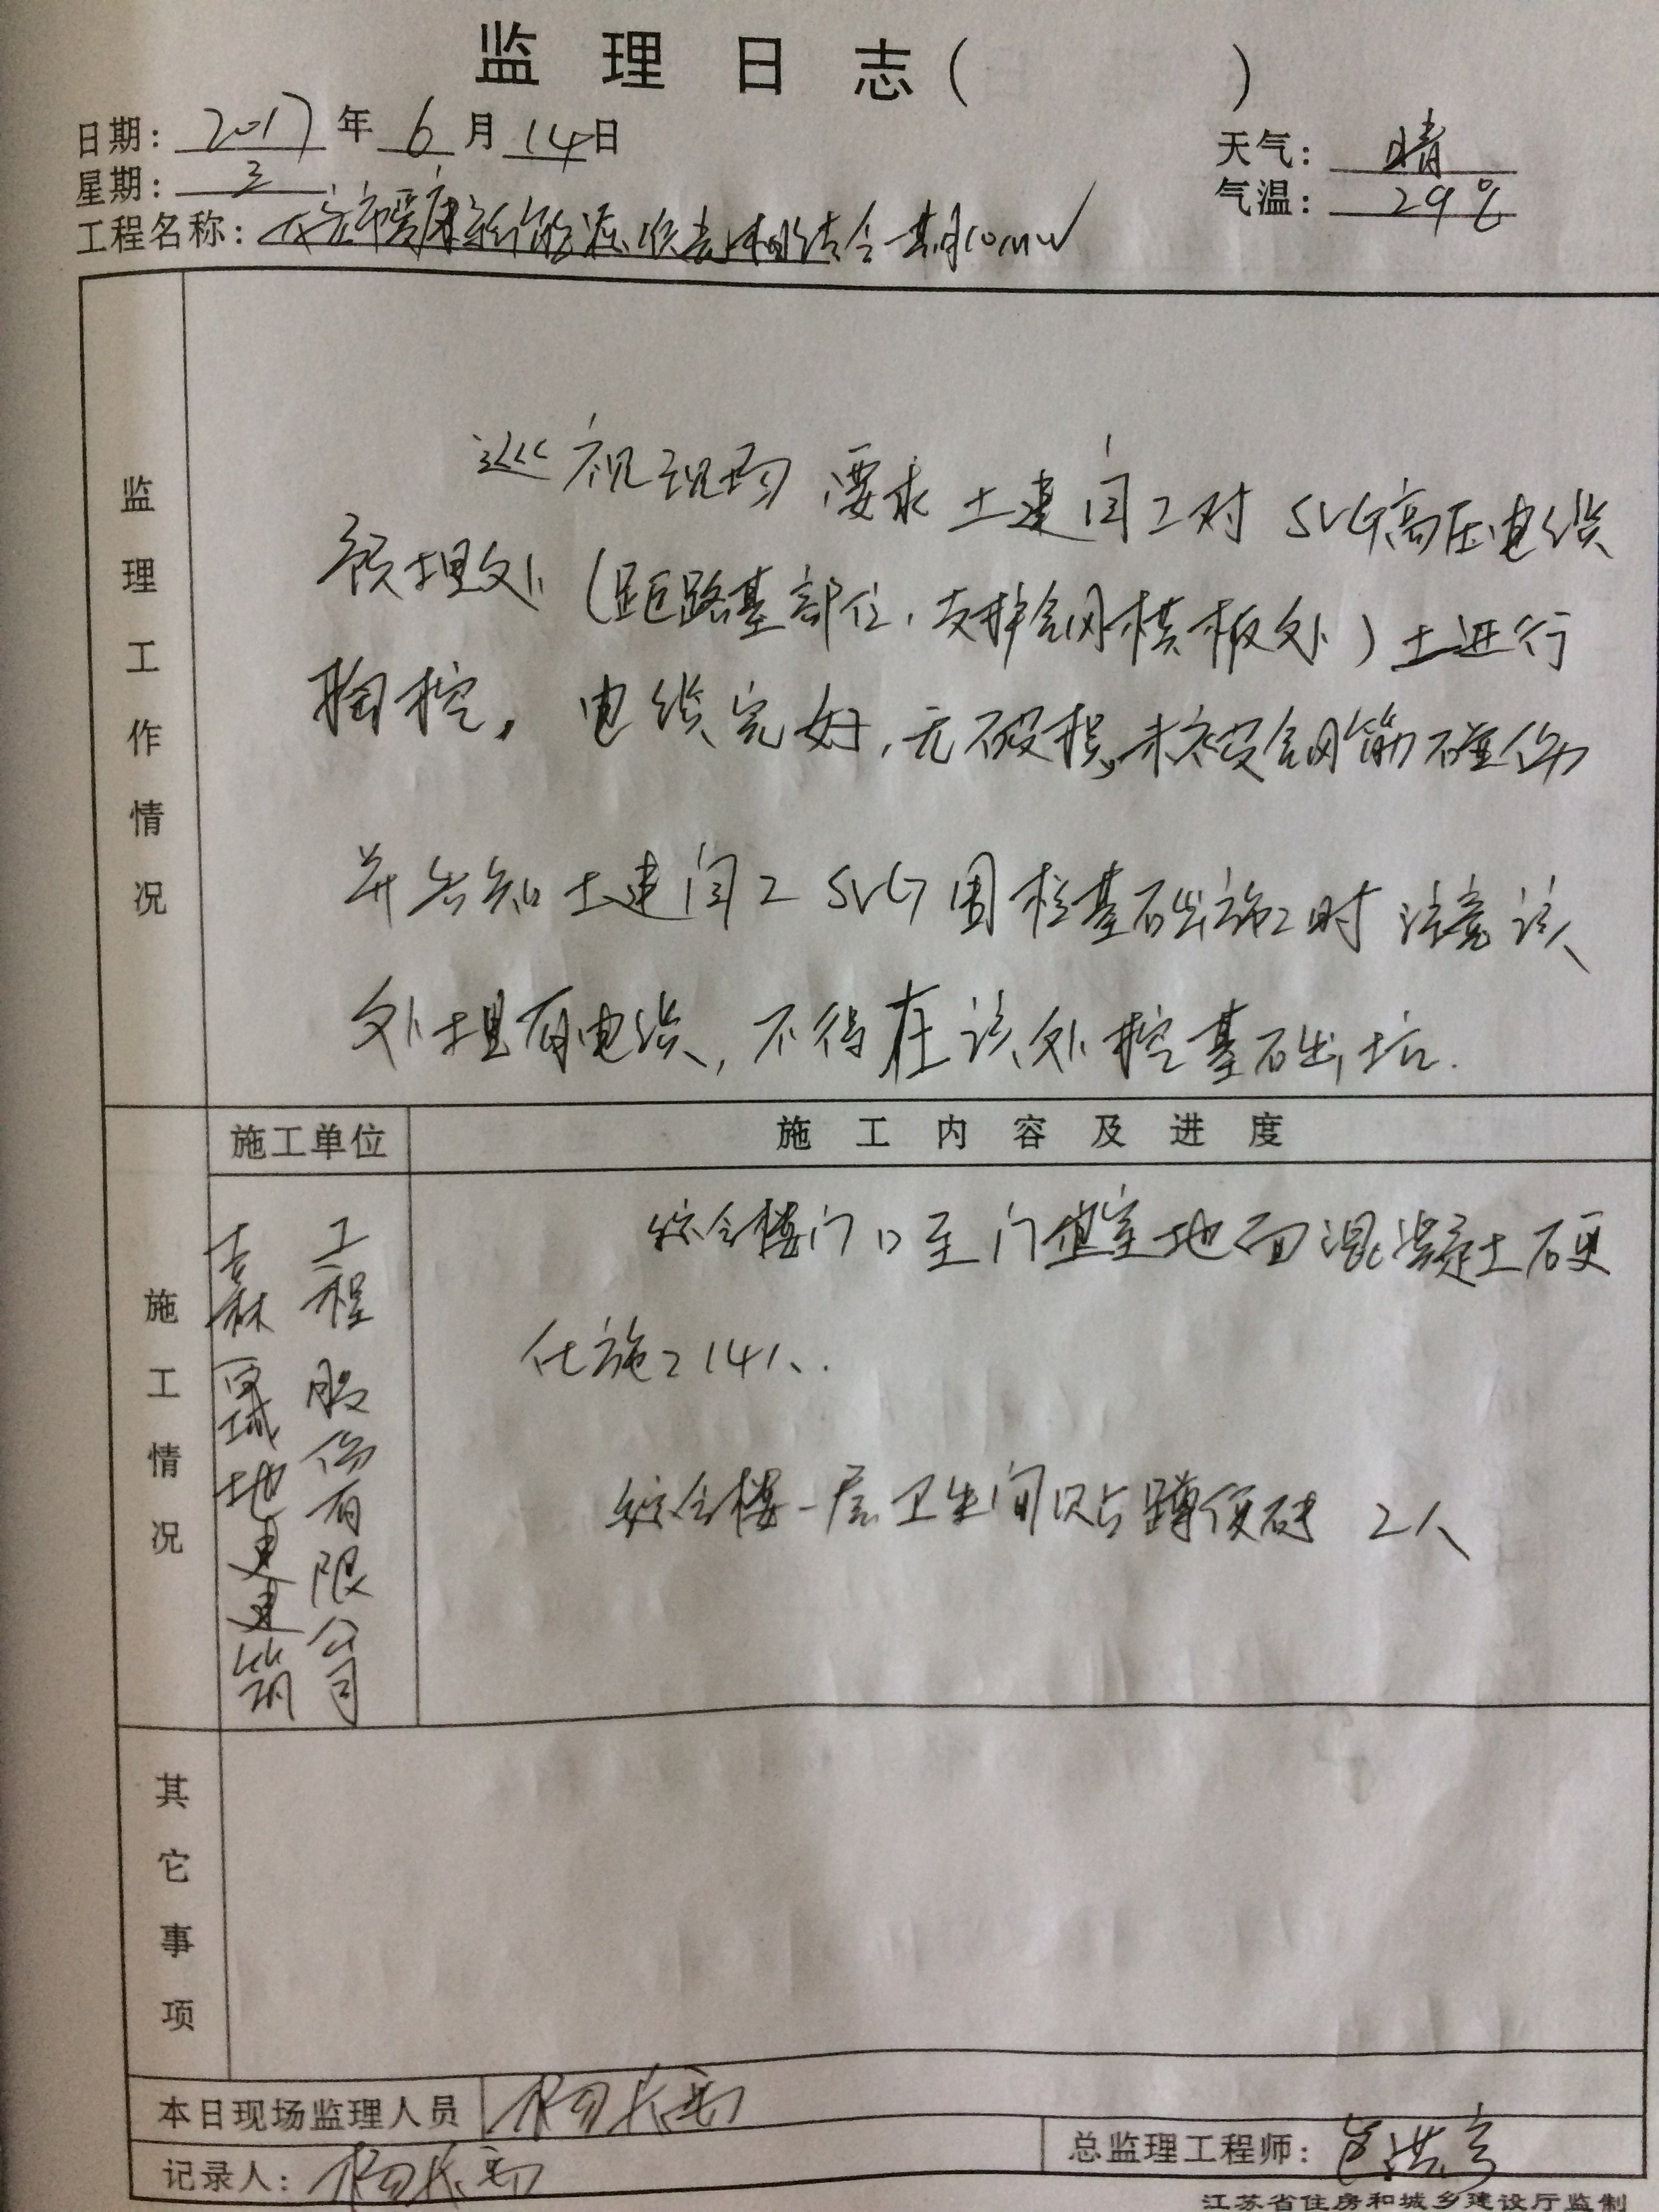 监理日志（ ）
日期：2017年6月14日
天气：晴
星期：三
气温：29℃
工程名称：市 新能源 相结合一期10MW
监理工作情况
巡视现场 要求土建闫工对SVG高压电缆
预埋处（距路基部位，支护钢模板处）土进行
掏挖，电缆完好，无破损，未被钢筋碰伤
并告知土建闫工SVG围栏基础施工时注意该
处埋有电缆，不得在该处挖基础坑.
施工单位
施工内容及进度
施工情况
吉林 地 建筑
工程股份有限公司
综合楼门口至门卫室地面混凝土硬
化施工14人.
综合楼一层卫生间贴蹲便砖 2人
其它事项
本日现场监理人员 杨
记录人：杨
总监理工程师：
江苏省住房和城乡建设厅监制